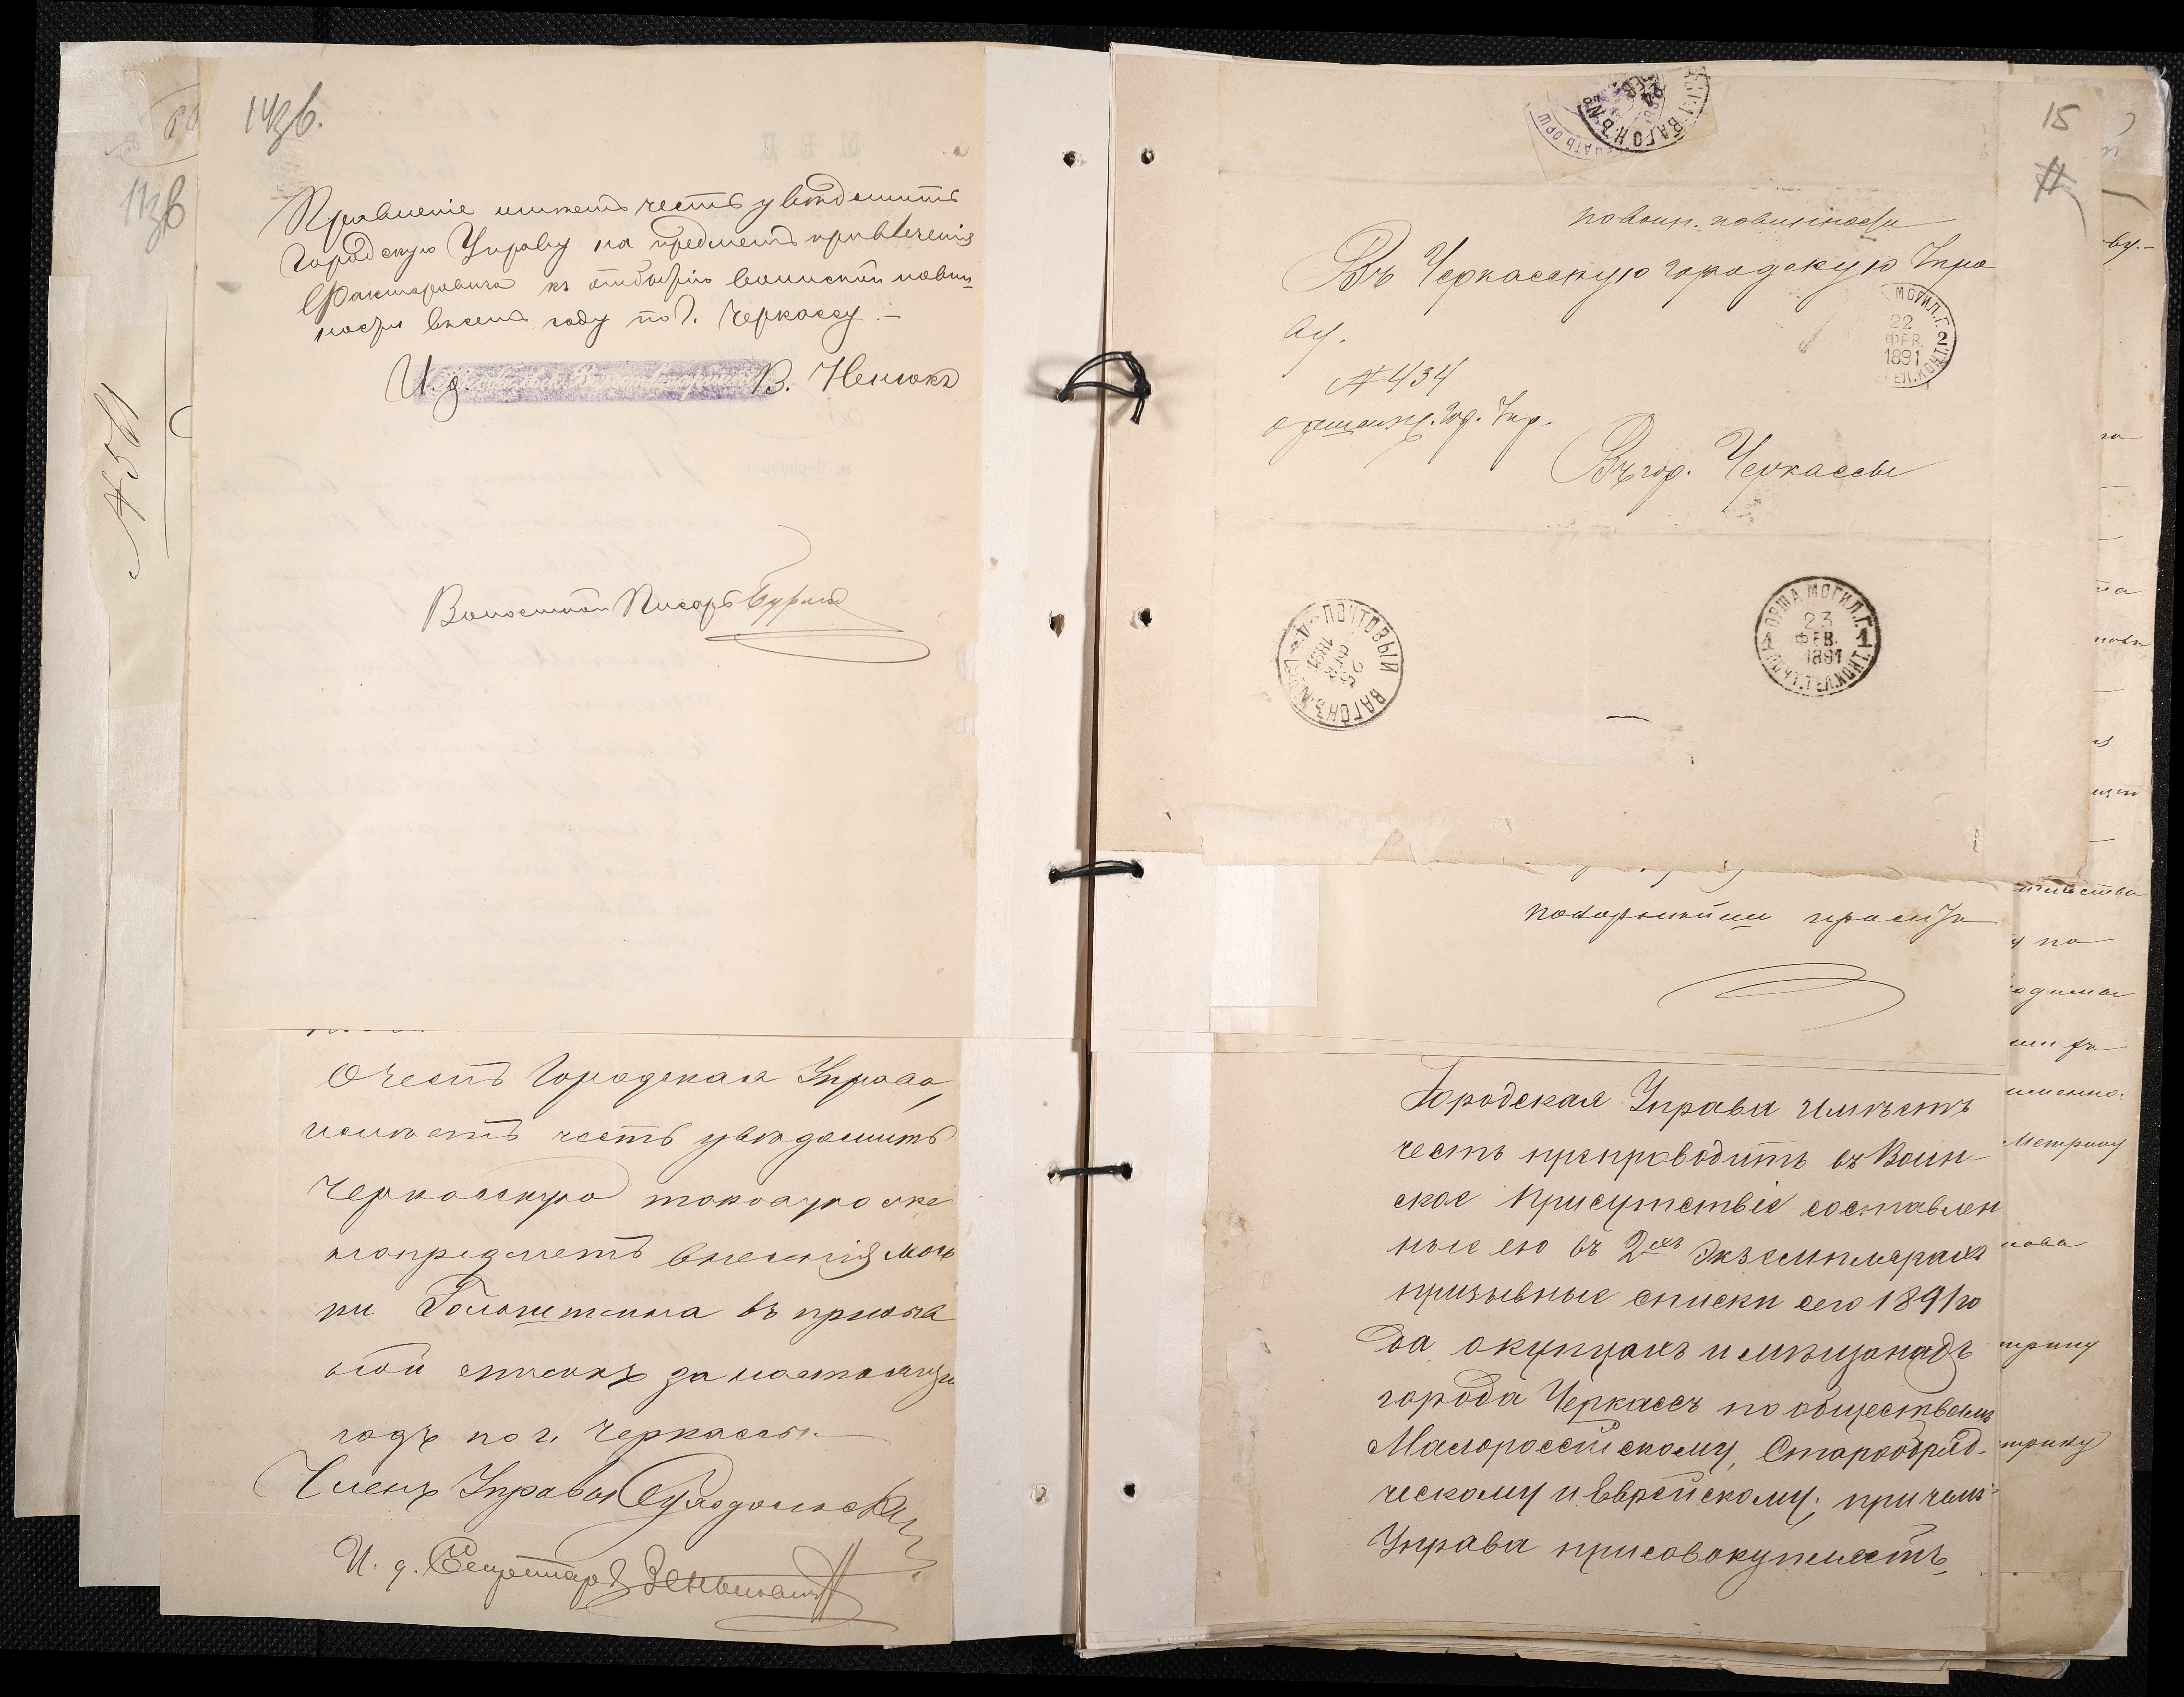 14зв.
Правленіе имѣетъ честь увѣдомить
Городскую Управу на предметъ привлеченія
Факторовича къ отбытію воинской повин
ности въ семъ году по г. Черкассу.-
И. д. В. Ненюкъ
Волостной Писарь
11зв
№ 561
О чемъ Городская Управа,
имѣетъ честь увѣдомить
Черкасскую таковую же
на предметъ внесенія Мош
ки Голоштеина въ призыв
ной списокъ за настоящій
годъ по г. Черкассы.
Членъ Управы
И. д. Секретаря
15
11
ВАГОНЪ №
по воин. повинности
Въ Черкасскую городскую Упра
ву.
МОГИЛ.Г.
22
ФЕВ.
1891
№ 434
Гор. Упр.
Въ гор. Черкассы
ПОЧТОВЫЙ ВАГОНЪ
25
ФЕВ
1891
ОРША МОГИЛ.Г.
23
ФЕВ.
1891
ПОЧТ.ТЕЛ.КОНТ.
покорнѣйши просить
Городская Управа имѣетъ
честь препроводить въ Воин-
ское Присутствіе составлен
ные ею въ 2хъ экземплярахъ
призывные списки сего 1891 го
да о купцахъ и мѣщанахъ
города Черкассъ по обществамъ
Малороссійскому, Старообряд-
ческому и Еврейскому; при чемъ
Управа присовокупляетъ,